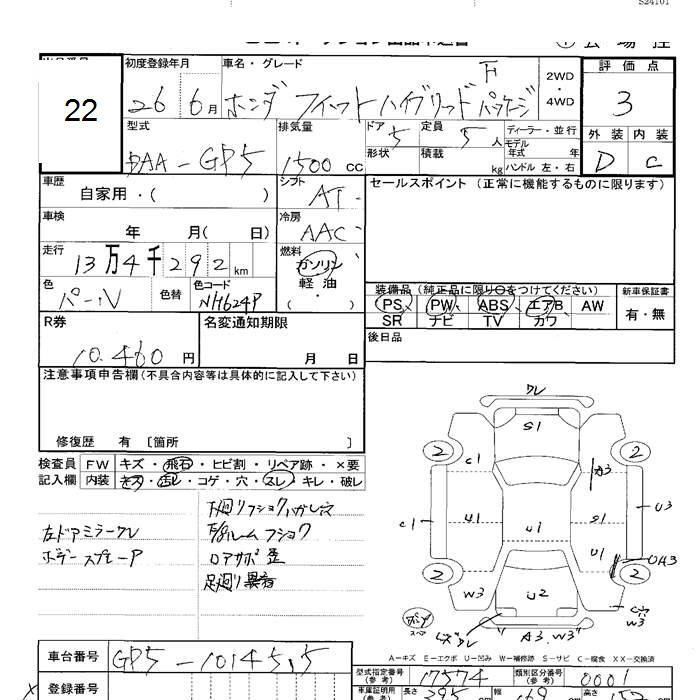 S24101
22
初度登録年月 車名・グレード 2WD・4WD 評価点
26 6月 ホンダ フィットハイブリッド F パッケージ 3
型式 排気量 ドア 定員 ディーラー・並行 外装 内装
DAA-GP5 1500 cc 5 5 人 モデル年式 年 D C
形状 積載 kg ハンドル 左・右
車歴 シフト セールスポイント (正常に機能するものに限ります)
自家用・( ) AT
車検 冷房
年 月( 日) AAC
走行 燃料
13万4千292 km ガソリン 軽油 ( ・ )
装備品 (純正品に限り○をつけてください) 新車保証書
色 色替 色コード PS PW ABS エアB AW 有・無
パール NH624P SR ナビ TV カワ
R券 名変通知期限 後日品
10,460 円 月 日
注意事項申告欄 (不具合内容等は具体的に記入して下さい)
修復歴 有 [箇所 ]
検査員 FW キズ・飛石・ヒビ割・リペア跡・×要
記入欄 内装 キズ・汚レ・コゲ・穴・スレ・キレ・破レ
左ドアミラーワレ
ボデースプレーP
ロアサポ 歪
ワレ
S1
2 2
C1 A3
C1 U1 U1 S1 U3
U1
2 2
W3 U2 W3
A3.W3
スペア
A−キズ E−エクボ U−凹み W−補修跡 S−サビ C−腐食 XX−交換済
車台番号 GP5-1014515
型式指定番号 (参考) 17574 類別区分番号 (参考) 0001
登録番号
車庫証明用 (参考) 長さ 395 幅 169 高さ 152